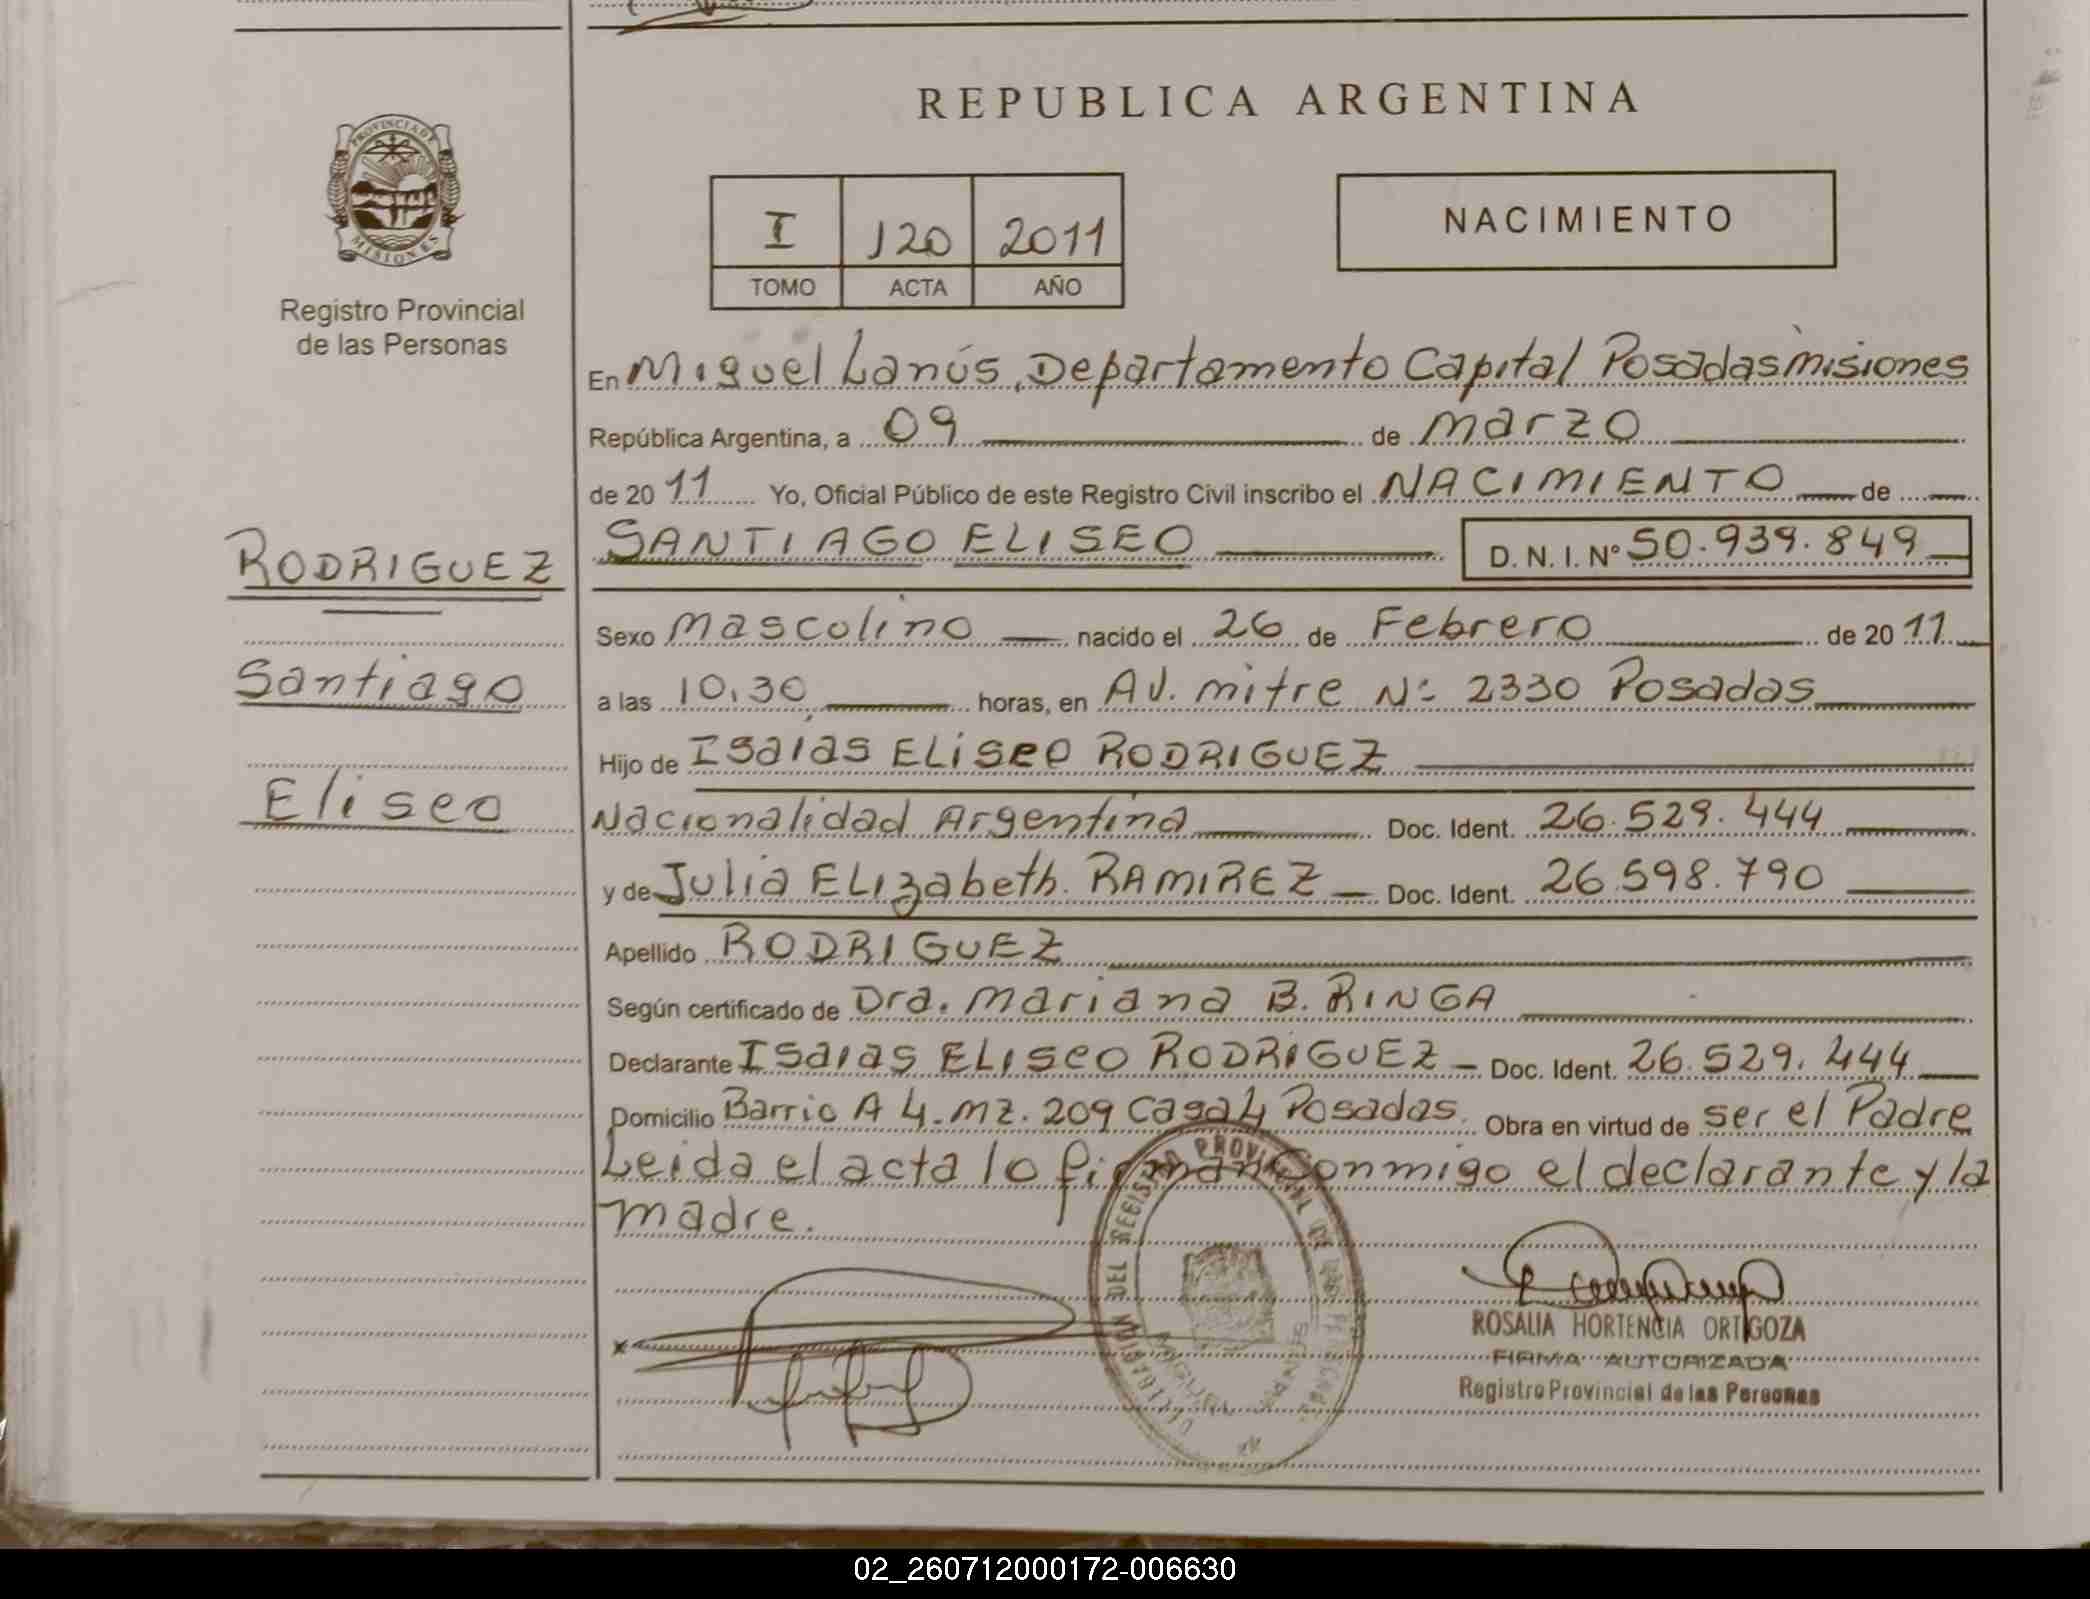 REPUBLICA ARGENTINA
PROVINCIA DE
MISIONES
Registro Provincial
de las Personas
I 120 2011
TOMO ACTA AÑO
NACIMIENTO
En Miguel Lanús, Departamento Capital Posadas Misiones
República Argentina, a 09 de marzo
de 2011 Yo, Oficial Público de este Registro Civil inscribo el NACIMIENTO de
RODRIGUEZ
Santiago
Eliseo
SANTIAGO ELISEO D. N. I. Nº 50.939.849
Sexo masculino nacido el 26 de Febrero de 2011
a las 10,30 horas, en AV. mitre Nº 2330 Posadas
Hijo de Isaias ELiseo RODRIGUEZ
Nacionalidad Argentina Doc. Ident. 26.529.444
y de Julia ELizabeth. RAMIREZ Doc. Ident. 26.598.790
Apellido RODRIGUEZ
Según certificado de Dra. Mariana B. RINGA
Declarante Isaias ELISEO RODRIGUEZ Doc. Ident. 26.529.444
Domicilio Barrio A 4. mz. 209 Casa 4 Posadas. Obra en virtud de ser el Padre
Leida el acta lo firman conmigo el declarante y la
madre.
DELEGACION DEL REGISTRO PROVINCIAL DE LAS PERSONAS
ROSALIA HORTENCIA ORTIGOZA
FIRMA AUTORIZADA
Registro Provincial de las Personas
02_260712000172-006630